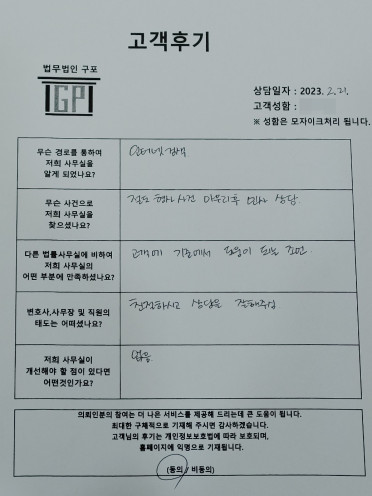 고객후기
법무법인 구포
GP
상담일자 : 2023. 2. 21.
고객성함 :
※ 성함은 모자이크처리 됩니다.
무슨 경로를 통하여
저희 사무실을
알게 되었나요?
인터넷 검색
무슨 사건으로
저희 사무실을
찾으셨나요?
절도 형사사건 마무리후 민사 상담
다른 법률사무실에 비하여
저희 사무실의
어떤 부분에 만족하셨나요?
고객에 기준에서 도움이 되는 조언
변호사,사무장 및 직원의
태도는 어떠셨나요?
친절하시고 상담을 잘해주심
저희 사무실이
개선해야 할 점이 있다면
어떤것인가요?
없음
의뢰인분의 참여는 더 나은 서비스를 제공해 드리는데 큰 도움이 됩니다.
최대한 구체적으로 기재해 주시면 감사하겠습니다.
고객님의 후기는 개인정보보호법에 따라 보호되며,
홈페이지에 익명으로 기재됩니다.
(동의 / 비동의)